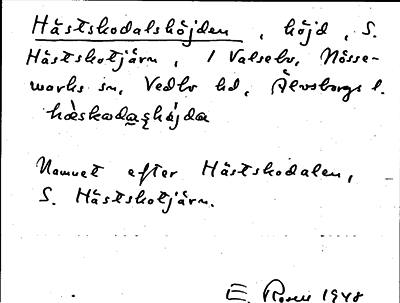 Hästskodalshöjden, höjd, S.
Hästskotjärn, 1 Valsebo, Nösse-
marks sn, Vedbo hd, Älvsborgs l.
hæ̀skadaʂhǻjda
Namnet efter Hästskodalen,
S. Hästskotjärn.
E. Rosell 1948